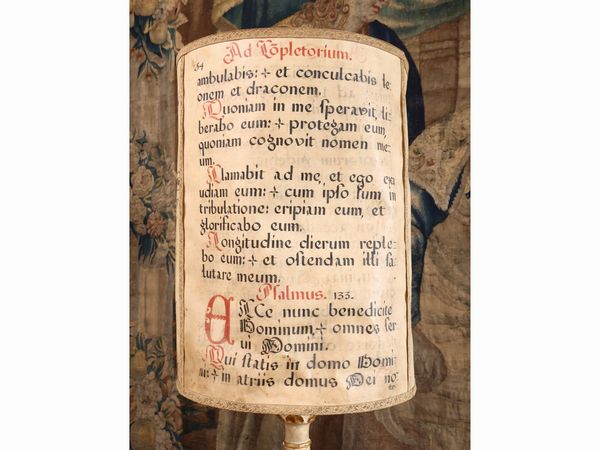 Ad Cōpletorium.
54
ambulabis: + et conculcabis le
onem et draconem.
Quoniam in me speravit, li-
berabo eum: + protegam eum,
quoniam cognovit nomen me-
um.
Clamabit ad me, et ego exa
udiam eum: + cum ipso sum in
tribulatione: eripiam eum, et
glorificabo eum.
Longitudine dierum reple-
bo eum: + et ostendam illi sa-
lutare meum.
Psalmus. 133.
ECce nunc benedicite
Dominum, + omnes ser
vi Domini.
Qui statis in domo Domi-
ni: + in atriis domus Dei no-